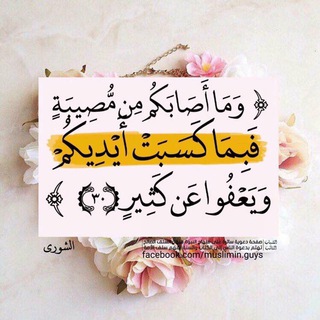 ﴿ وَمَا أَصَابَكُم مِّن مُّصِيبَةٍ
فَبِمَا كَسَبَتْ أَيْدِيكُمْ
وَيَعْفُوا عَن كَثِيرٍ ﴿٣٠﴾ ﴾
الشورى
facebook.com/muslimin.guys